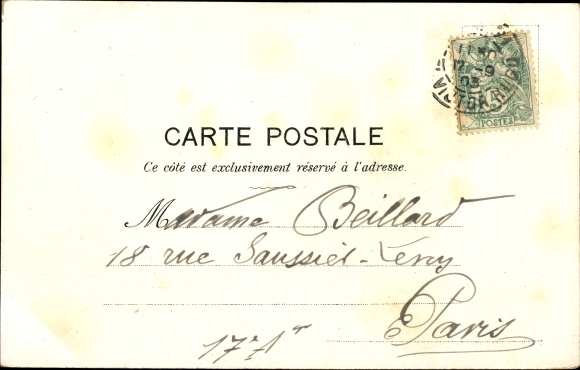 17 -9
03
POSTES
CARTE POSTALE
Ce côté est exclusivement réservé à l'adresse.
Madame Beillard
18 rue Saussier-Leroy
Paris
17e Ar